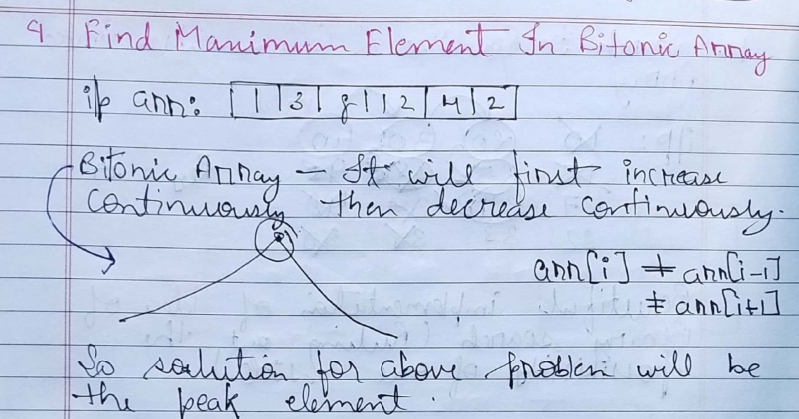 9 Find Maximum Element In Bitonic Array
i/p arr: | 1 | 3 | 8 | 12 | 4 | 2 |
Bitonic Array - It will first increase
continuously then decrease continuously.
arr[i] ≠ arr[i-1]
≠ arr[i+1]
So solution for above problem will be
the peak element.